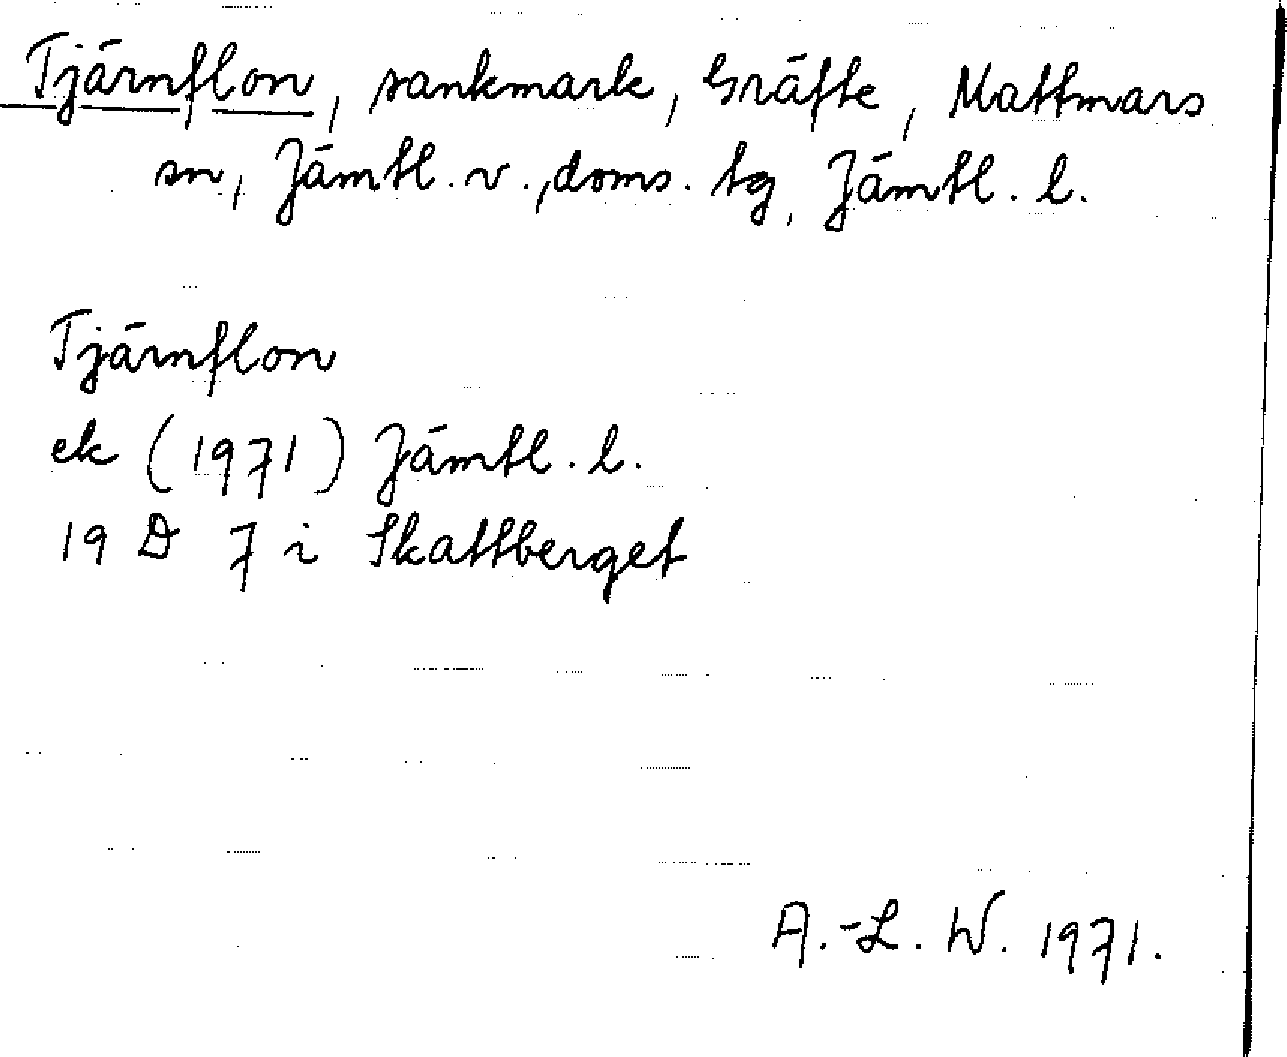 Tjärnflon, sankmark, Gräfte, Mattmars
sn, Jämtl. v., doms. tg, Jämtl. l.
Tjärnflon
ek (1971) Jämtl. l.
19 D 7 i Skattberget
A.-L. W. 1971.